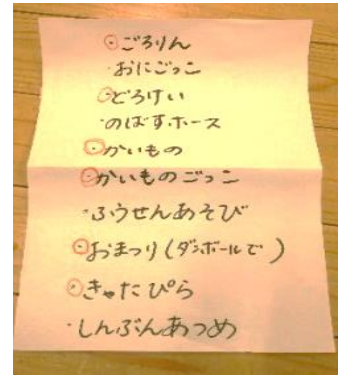 ・ごろりん
・おにごっこ
・どろけい
・のばすホース
・かいもの
・かいものごっこ
・ふうせんあそび
・おまつり(ダンボールで)
・きゃたぴら
・しんぶんあつめ